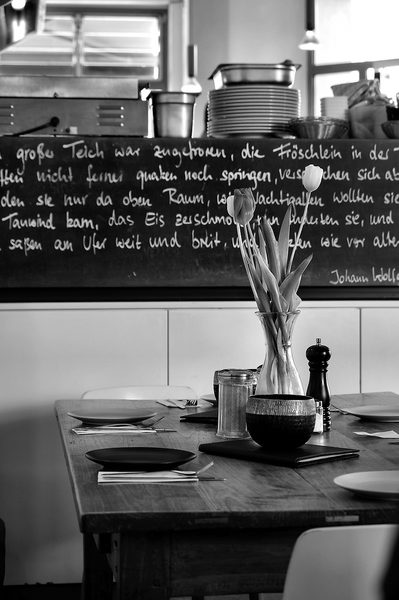 großer Teich war zugefroren, die Fröschlein in der T
ften nicht ferner quaken noch springen, versprachen sich ab
den sie nur da oben Raum, wie Nachtigallen wollten sie
Tauwind kam, das Eis zerschmo landeten sie, und
saßen am Ufer weit und breit, und en wie vor alter
Johann Wolf